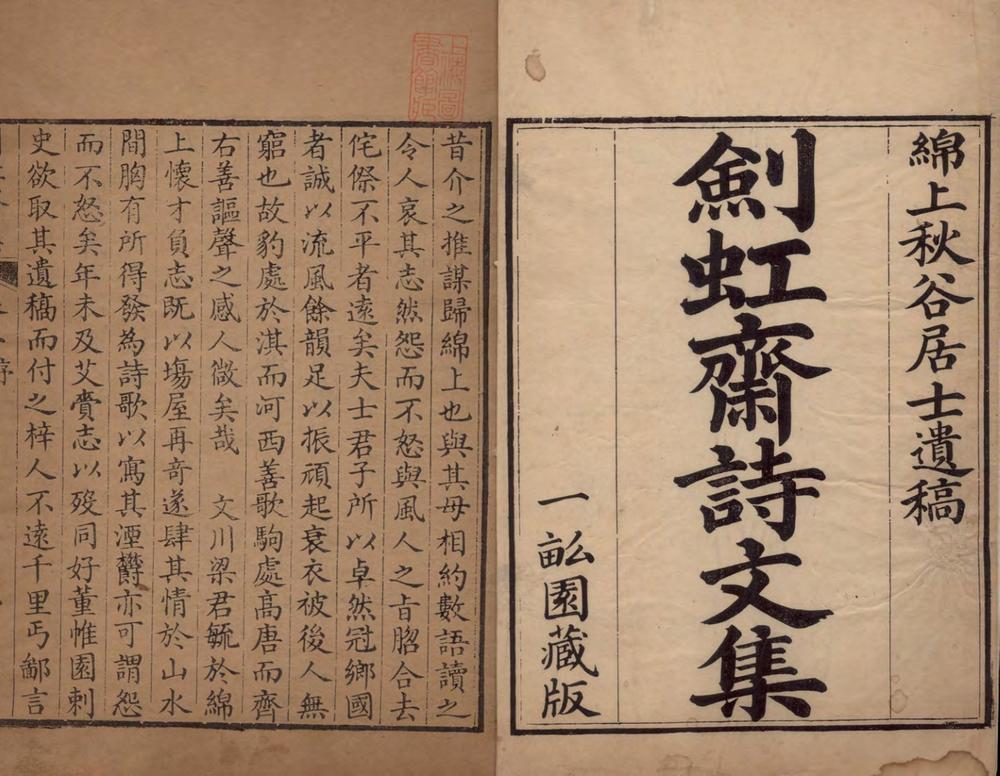 綿上秋谷居士遺稿
劍虹齋詩文集
一畝園藏版
上海圖書館藏
昔介之推謀歸綿上也與其母相約數語讀之
令人哀其志然怨而不怒與風人之旨脗合去
侘傺不平者遠矣夫士君子所以卓然冠鄉國
者誠以流風餘韻足以振頑起衰衣被後人無
窮也故豹處於淇而河西善歌駒處高唐而齊
右善謳聲之感人微矣哉　文川梁君毓於綿
上懷才負志既以塲屋再奇遂肆其情於山水
間胸有所得發為詩歌以寫其湮鬱亦可謂怨
而不怒矣年未及艾賷志以歿同好董惟園刺
史欲取其遺稿而付之梓人不遠千里丐鄙言